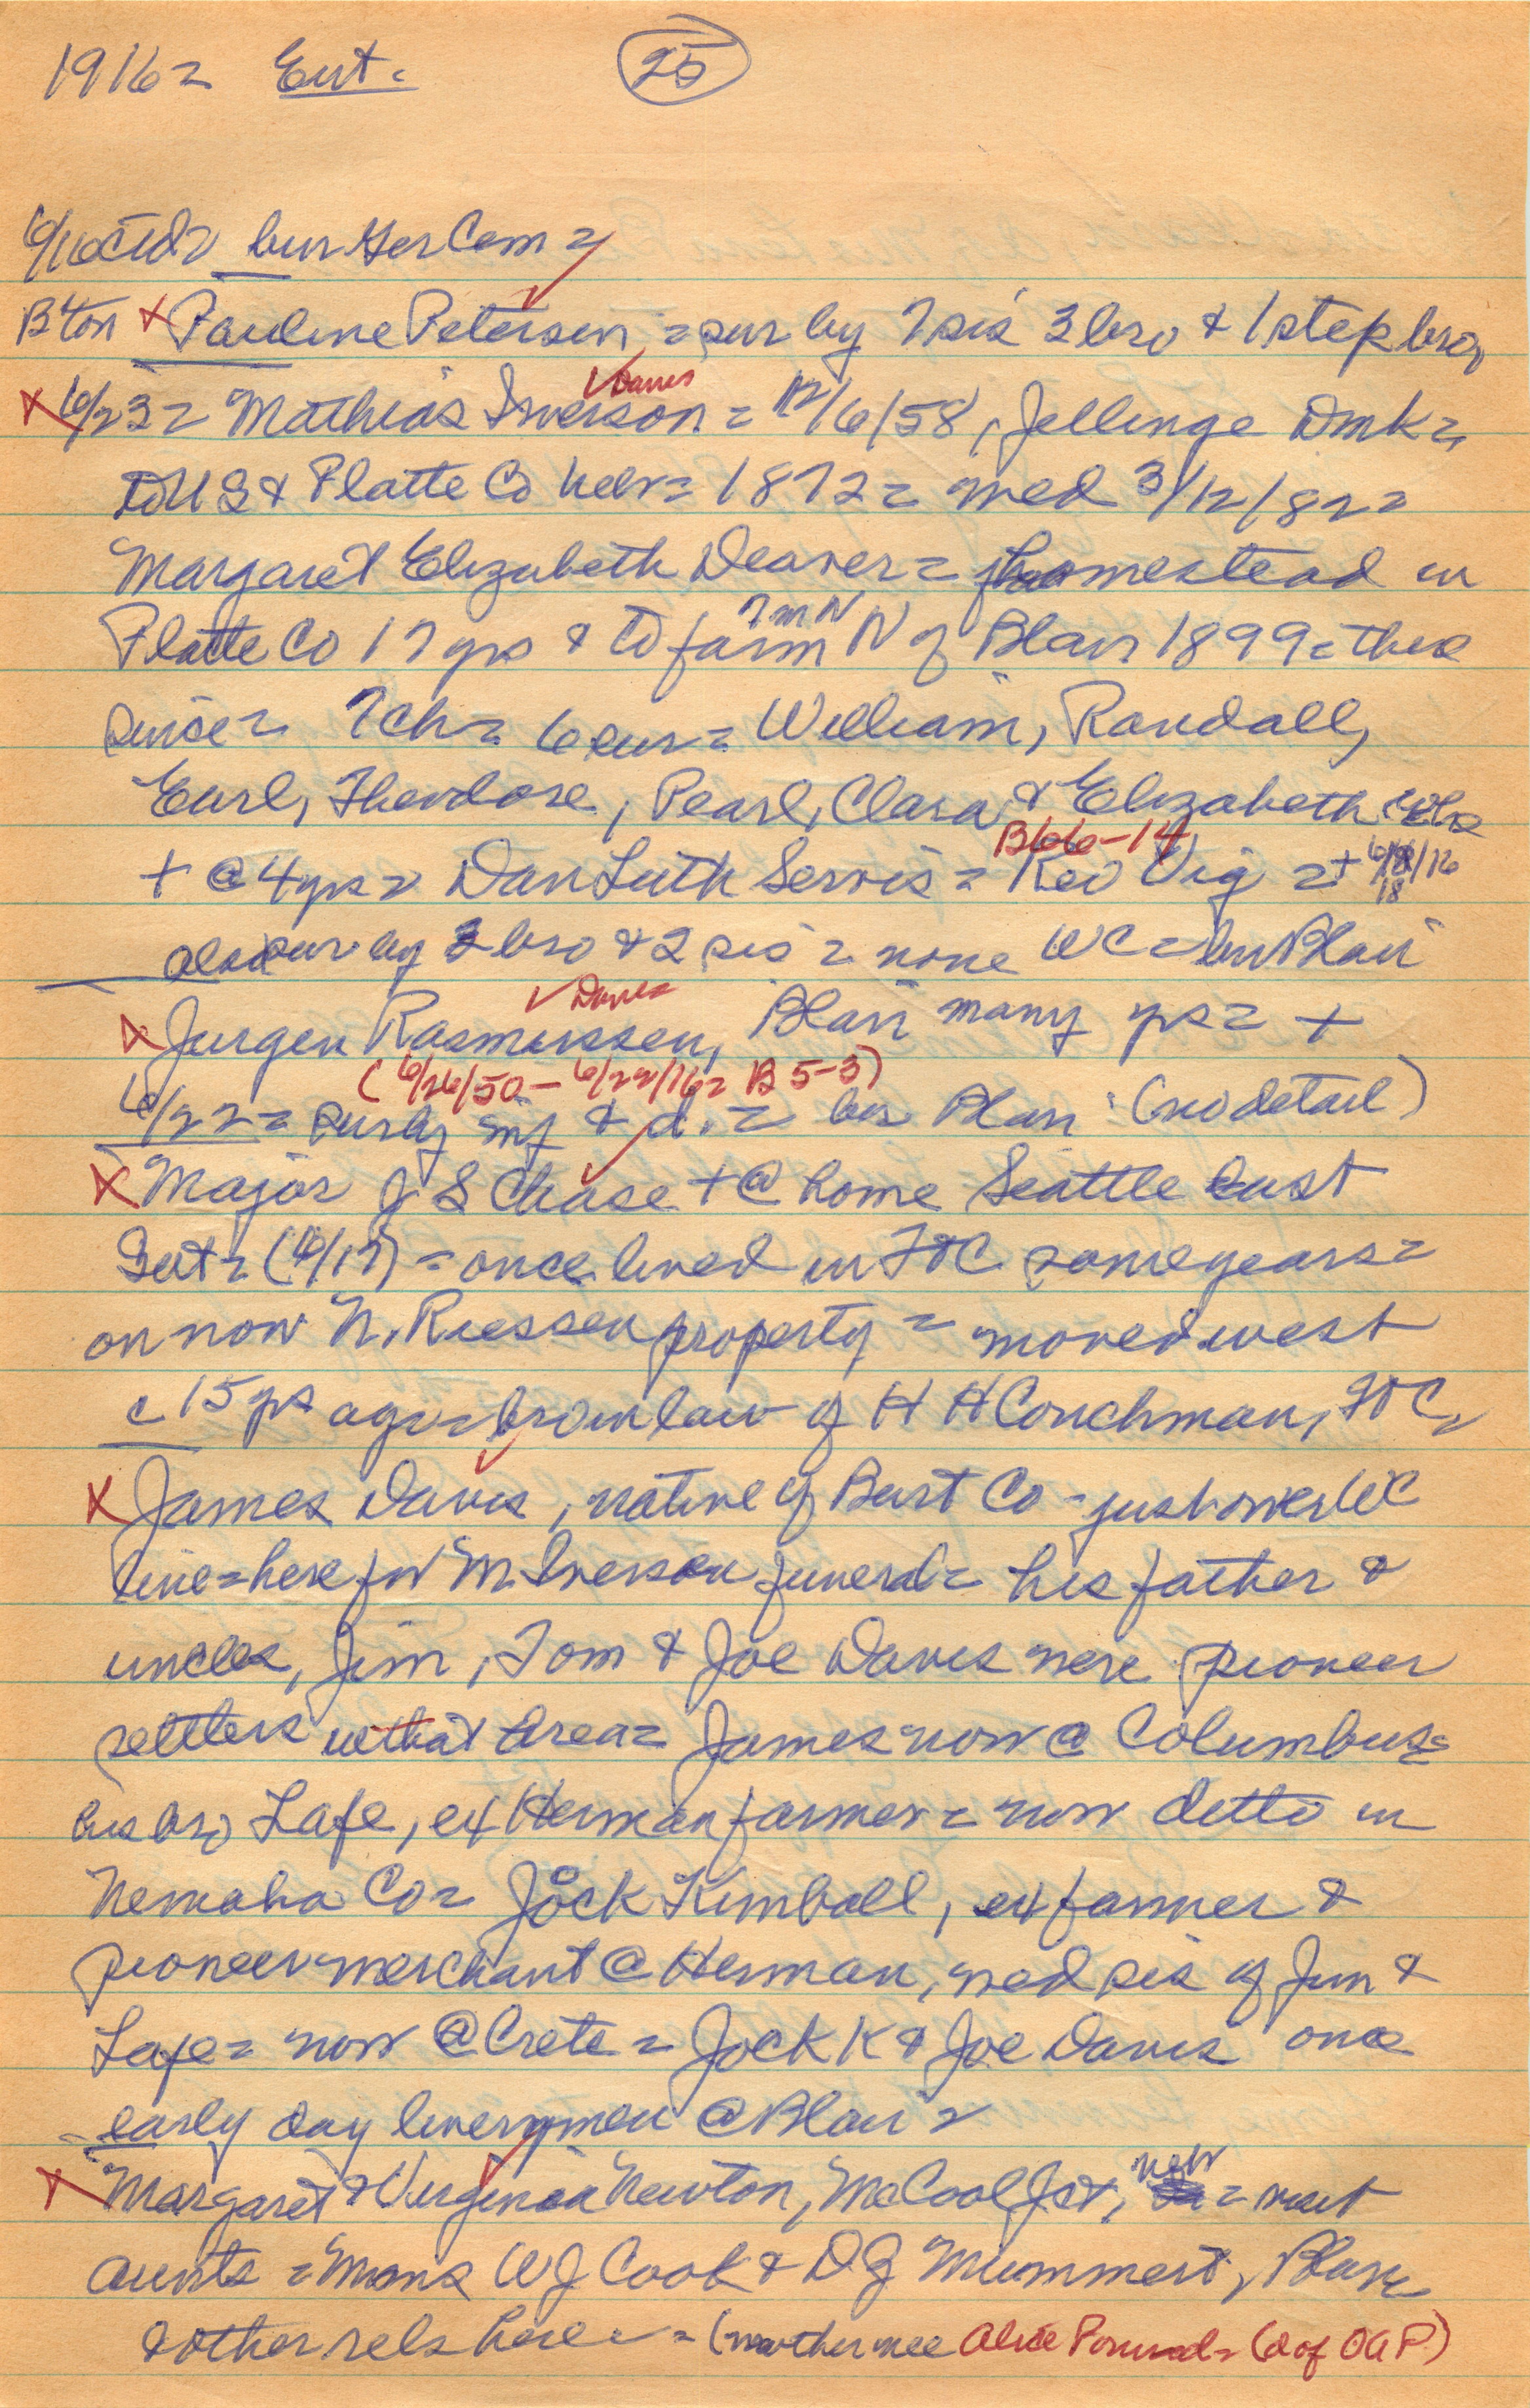 1916= Ent. 25
6/16 ctd= bur Her Cem=
B'ton x Pauline Petersen = sur by 7 sis 3 bro & 1 step bro,
✓Danes
x 6/23= Mathias Iverson = 12/6/58, Jellinge Dmk=
to US & Platte Co Nebr= 1872= med 3/12/82=
Margaret Elizabeth Deaver= homestead in
7 m N
Platte Co 17 yrs & to farm N of Blair 1899= there
since= 7 ch= 6 sur= William, Randall,
Earl, Theodore, Pearl, Clara & Elizabeth who
B66-14
+ @ 4 yrs= Dan Luth Servis= Rev Vig = + 6/18/16
also sur by 2 bro & 2 sis = none WC= bur Blair
✓ Danes
x Jurgen Rasmussen, Blair many yrs= +
(6/26/50 - 6/22/16= B 5-3)
6/22= sur by inf & d. = bur Blair (no detail)
x Major J S Chase + @ home Seattle last
Sat= (6/17) = once lived in FtC some years=
on now N. Riessen property = moved west
c 15 yrs ago= bro in law of H H Couchman, FtC,
x James Davis, native of Burt Co - just over WC
line= here for M. Iverson funeral= his father &
uncles, Jim, Tom & Joe Davis were pioneer
settlers in that area= James now @ Columbus=
his bro Lafe, ex Herman farmer= now ditto in
Nemaha Co= Jock Kimball, ex farmer &
pioneer merchant @ Herman, med sis of Jim &
Lafe= now @ Crete = Jock K & Joe Davis once
early day liverymen @ Blair=
x Margaret & Virginia Newton, McCool Jct, Nebr = visit
aunts = Mmes W J Cook & D G Mummert, Blair
& other rels here = (mother nee Alice Pound= (d of OAP)